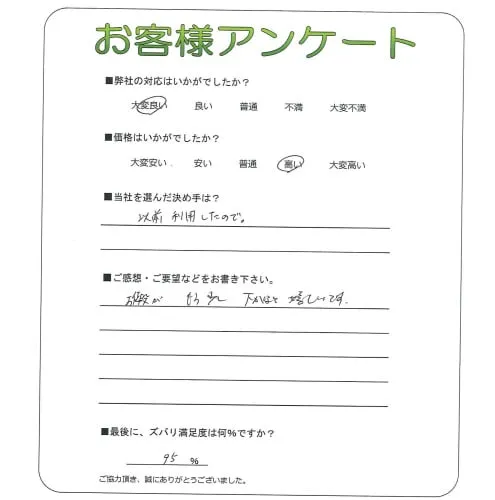 お客様アンケート
■弊社の対応はいかがでしたか？
大変良い 良い 普通 不満 大変不満
■価格はいかがでしたか？
大変安い． 安い 普通 高い 大変高い
■当社を選んだ決め手は？
以前 利用したので。
■ご感想・ご要望などをお書き下さい。
お値段が もう少し 下がると 嬉しいです.
■最後に、ズバリ満足度は何％ですか？
95 ％
ご協力頂き、誠にありがとうございました。